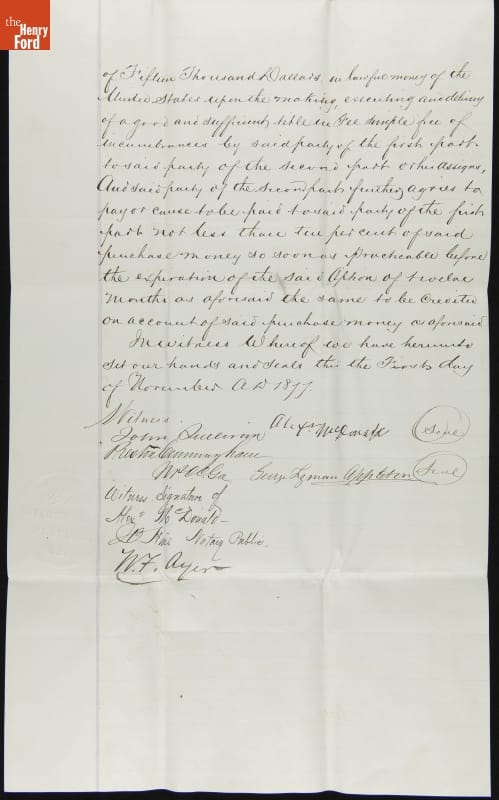 the
Henry
Ford
of Fifteen Thousand Dollars in lawful money of the
United States upon the making, executing and delivery
of a good and sufficient title in Fee simple free of
incumbrances by said party of the first part
to said party of the second part or his assigns,
And said party of the second part further agrees to
pay or cause to be paid to said party of the first
part not less than ten per cent of said
purchase money so soon as practicable before
the expiration of the said Option of twelve
Months as aforesaid the same to be credited
on account of said purchase money as aforesaid
In witness Whereof we have hereunto
set our hands and seals this the First day
of November A D 1877.
Witness
John Sullivan Alexr McDonald Seal
Cunningham
George Lyman Appleton Seal
Witness Signature of
Alexr McDonald
Notary Public.
W. F. Ayer